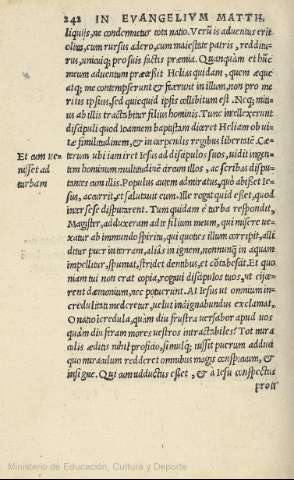 242 IN EVANGELIVM MATTH.
liquijs, ne condemnetur tota natio. Verũ is aduentus erit
olim, cum rursus adero, cum maiestate patris, redditu-
rus, unicuiq; pro suis factis præmia. Quanquàm et hũc
meum aduentum præceßit Helias quidam, quem æque
atq; me contempserunt & sæuierunt in illum, non pro me
ritis ipsius, sed quicquid ipsis collibitum est. Neq; mitius
ab illis tractabitur filius hominis. Tunc intellexerunt
discipuli quod Ioannem baptistam diceret Heliam ob ui-
tæ similitudinem, & in arguendis regibus libertatẽ. Cæ-
Et cum ue-
nisset ad
turbam
terum ubi iam iret Iesus ad discipulos suos, uidit ingen-
tem hominum multitudinẽ circum illos, ac scribas dispu-
tantes cum illis. Populus autem admiratus, quò abijßet Ie-
sus, accurrit, et salutauit eum. Ille rogat quid esset, quod
inter sese disputarent. Tum quidam è turba respondit,
Magister, adduxeram ad te filium meum, qui misere ue-
xatur ab immundo spiritu, qui quoties illum corripit, alli
ditur puer in terram, aliàs in ignem, nonnunꝗ̃ in aquam
impellitur, spumat, stridet dentibus, et cõtabescit. Et quo
niam tui non erat copia, rogaui discipulos tuos, ut eijce-
rent dæmonium, nec potuerunt. At Iesus ut omnium in-
credulitati mederetur, uelut indignabundus exclamat,
O natio incredula, quàm diu frustra uersabor apud uos
quàm diu feram mores uestros intractabiles? Tot mira
culis æditis nihil proficio, simulq; iußit puerum adduci
quo miraculum redderet omnibus magis conspicuum, &
insigne. Qui cum adductus esset, & à Iesu conspectus
Ministerio de Educación, Cultura y Deporte